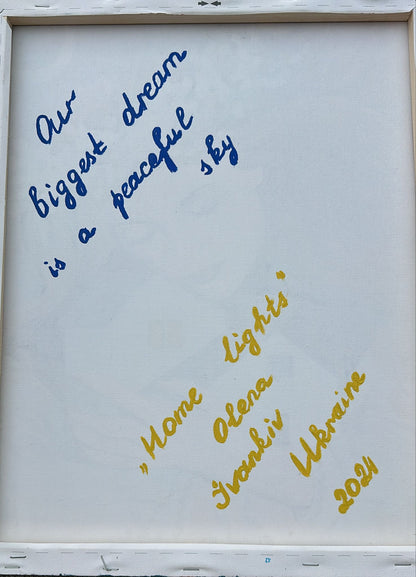 Our
biggest dream
is a peaceful
sky
„Home lights"
Olena
Ivankiv
Ukraine
2024